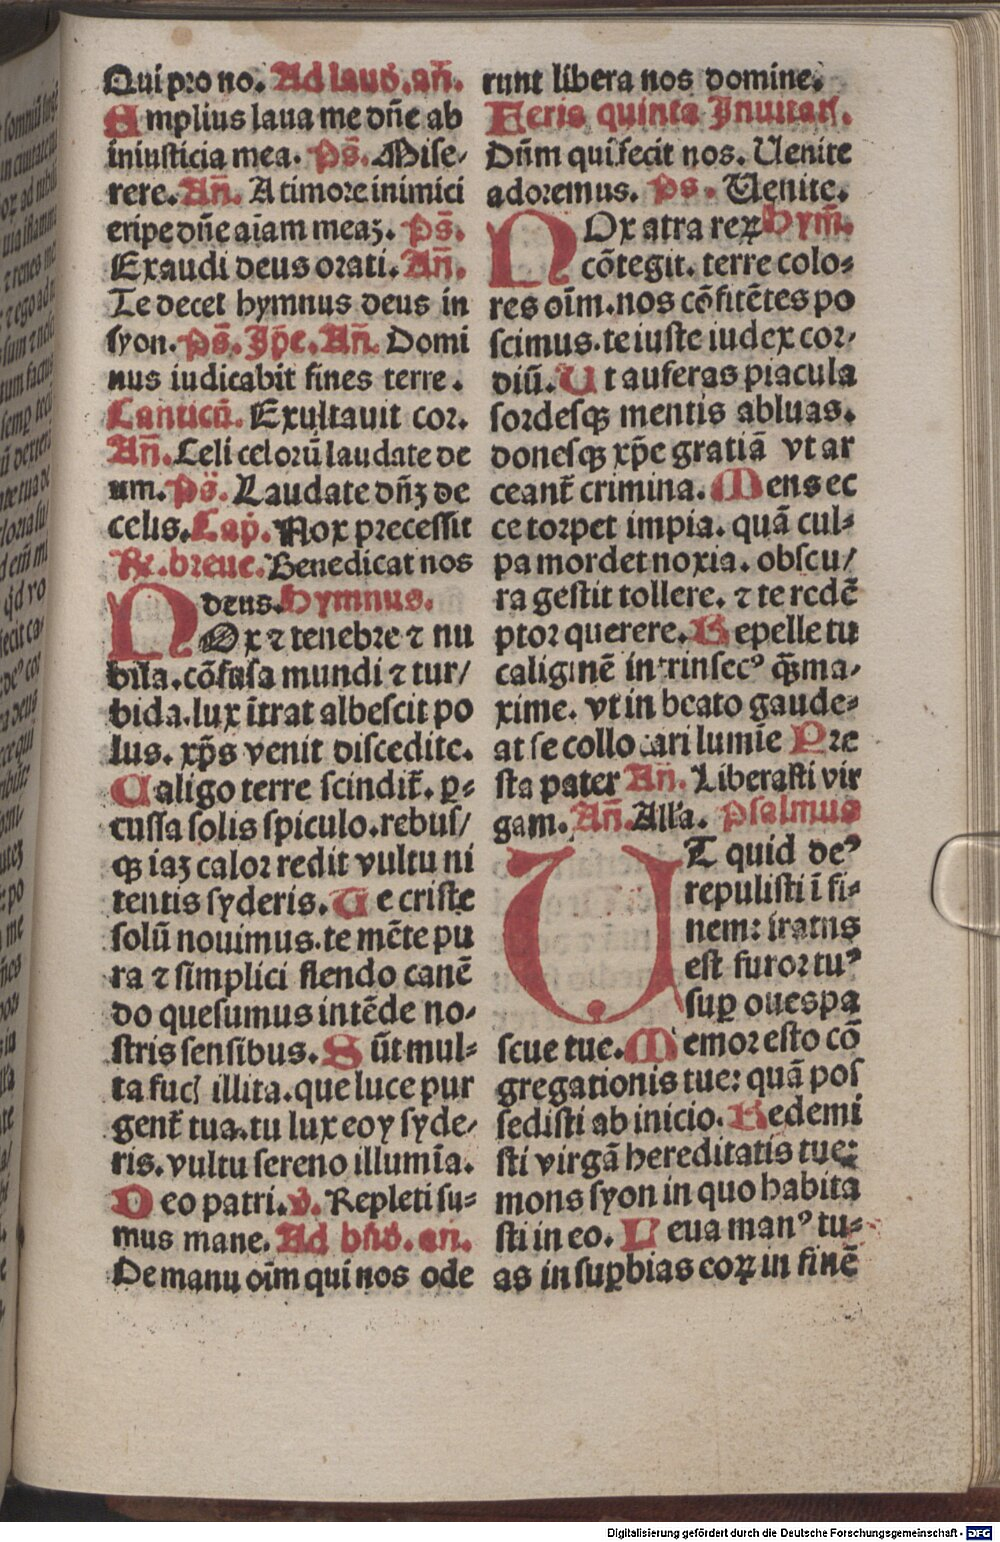 Qui pro no. Ad laud. añ.
Amplius laua me dñe ab
iniusticia mea. Ps̄. Mise-
rere. Añ. A timore inimici
eripe dñe aīam meaꝫ. Ps̄.
Exaudi deus orati. Añ.
Te decet hymnus deus in
syon. Ps̄. Ip̄e. Añ. Domi
nus iudicabit fines terre.
Canticū. Exultauit cor.
Añ. Celi celorū laudate de
um. Ps̄. Laudate dñꝫ de
celis. Cap̄. Nox precessit
R̄. breue. Benedicat nos
deus. Hymnus.
NOx ⁊ tenebre ⁊ nu
bila. cōfusa mundi ⁊ tur/
bida. lux ītrat albescit po
lus. xp̄s venit discedite.
Caligo terre scindit̄. ꝑ-
cussa solis spiculo. rebus/
qꝫ iaꝫ calor redit vultu ni
tentis syderis. Te criste
solū nouimus. te mēte pu
ra ⁊ simplici flendo canē
do quesumus intēde no-
stris sensibus. Sūt mul-
ta fucꝭ illita. que luce pur
gent̄ tua. tu lux eoy syde-
ris. vultu sereno illumīa.
Deo patri. v̄. Repleti su-
mus mane. Ad bñd. an.
De manu oīm qui nos ode
runt libera nos domine.
Feria quinta Inuitatꝭ.
Dñm qui fecit nos. Uenite
adoremus. Ps. Uenite.
NOx atra reꝝ Hym̄.
cōtegit. terre colo-
res oīm. nos cōfitētes po
scimus. te iuste iudex cor-
diū. Ut auferas piacula
sordesqꝫ mentis abluas.
donesqꝫ xp̄e gratiā vt ar
ceant̄ crimina. Mens ec
ce torpet impia. quā cul-
pa mordet noxia. obscu/
ra gestit tollere. ⁊ te redē
ptor querere. Repelle tu
caliginē intrinsecꝰ qꝫ̄ ma-
xime. vt in beato gaude-
at se collocari lumīe Pre
sta pater Añ. Liberasti vir
gam. Añ. Alľa. Psalmus
UT quid deꝰ
repulisti ī fi-
nem: iratus
est furor tuꝰ
suꝑ oues pa
scue tue. Memor esto cō
gregationis tue: quā pos
sedisti ab inicio. Redemi
sti virgā hereditatis tue:
mons syon in quo habita
sti in eo. Leua manꝰ tu-
as in suꝑbias eoꝝ in finē
Digitalisierung gefördert durch die Deutsche Forschungsgemeinschaft - DFG